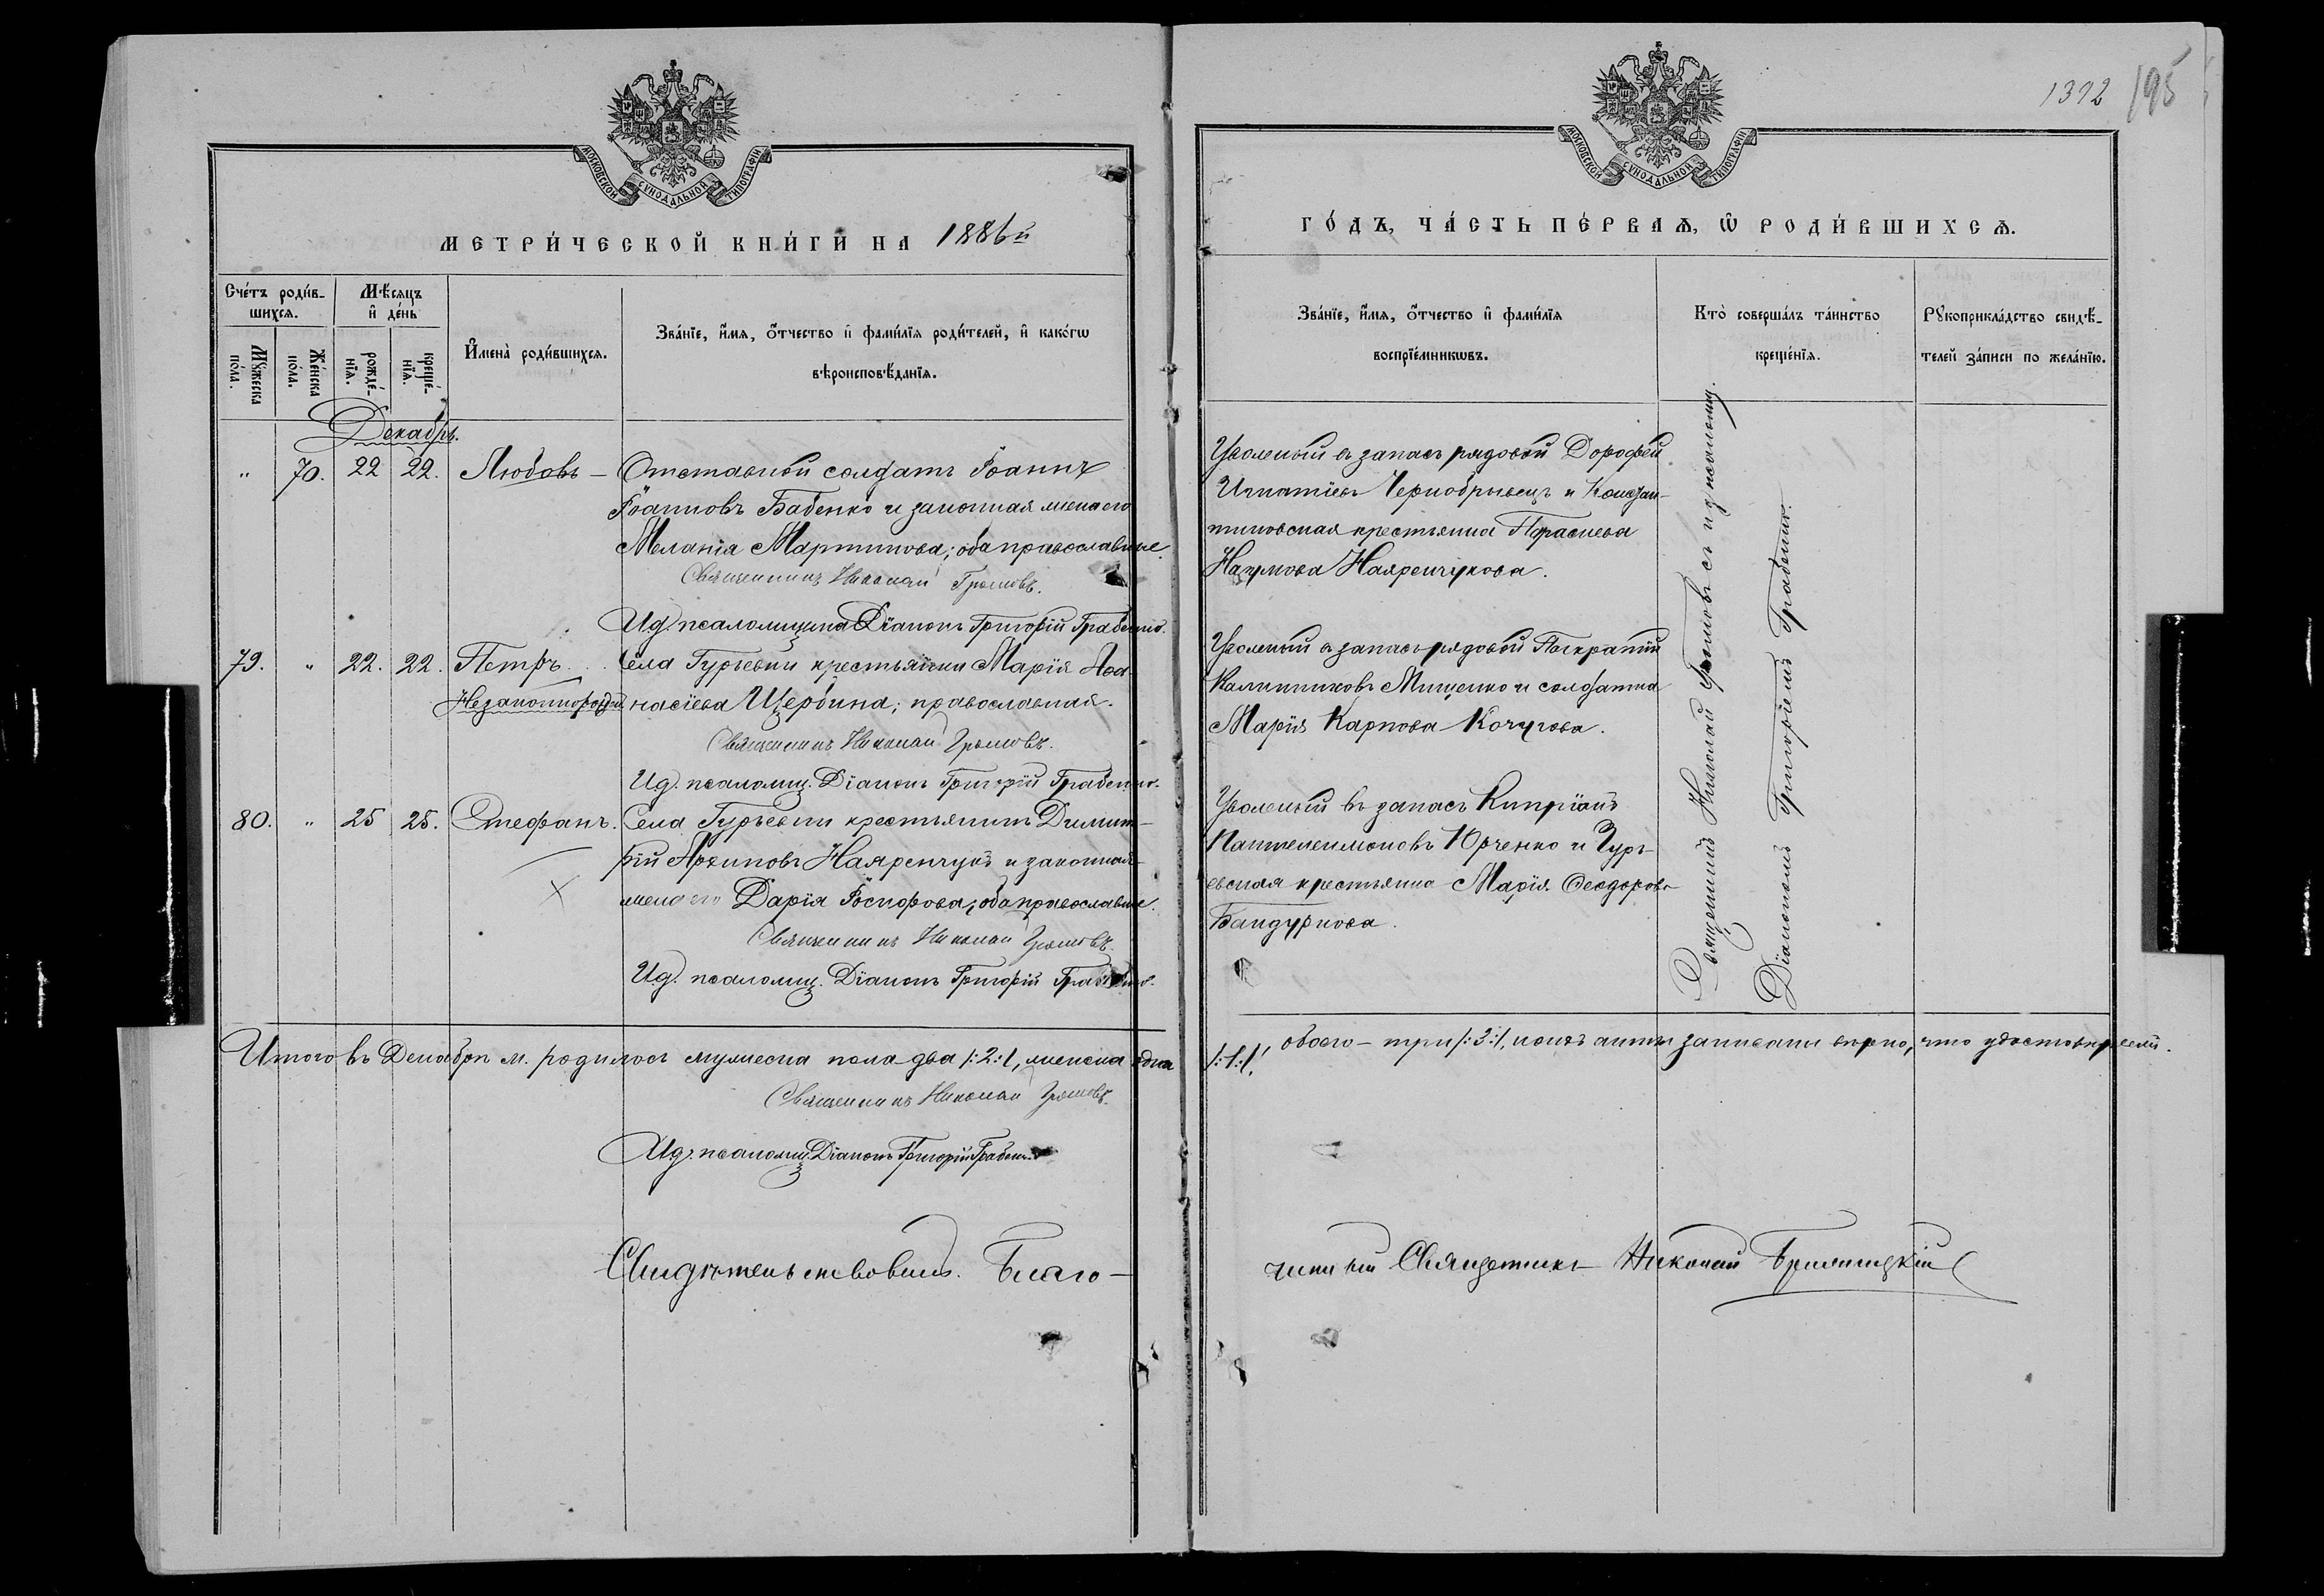 1392 195
МОСКОВСКОЙ СѴНОДАЛЬНОЙ ТИПОГРАФІИ
МОСКОВСКОЙ СѴНОДАЛЬНОЙ ТИПОГРАФІИ
МЕТРИ́ЧЕСКОЙ КНИ́ГИ НА 1886й
ГО́ДЪ, ЧА́СТЬ ПЕ́РВАЯ, Ѡ҆ РОДИ́ВШИХСЯ.
Сче́тъ роди́в-
шихся.
Му́жеска по́ла.
Же́нска по́ла.
Мѣ́сяцъ
и҆ де́нь
рожде́-нїя.
креще́-нїя.
И҆мена̀ роди́вшихся.
Зва́нїе, и҆́мя, ѻ҆́тчество и҆ фами́лїя роди́телей, и҆ како́гѡ
вѣроисповѣ́данїя.
Зва́нїе, и҆́мя, ѻ҆́тчество и҆ фами́лїя
воспрїе́мникѡвъ.
Кто̀ соверша́лъ та́инство
креще́нїя.
Рꙋкоприкла́дство свидѣ́-
телей за́писи по жела́нїю.
Декабрь.
" 70. 22 22. Любовь – Отставной солдатъ Іоаннъ
Іоанновъ Бабенко и законная жена его
Меланія Мартинова; оба православные.
Священникъ Николай Громовъ.
Ид. псаломщика Діаконъ Григорій Грабенко.
Уволеный въ запасъ рядовой Дорофей
Игнатіевъ Чернобрывецъ и Констан-
тиновская крестьянка Параскева
Наумова Наяренчукова.
79. " 22. 22. Петръ. Села Гурьевки крестьянка Марія Аѳа-
Незаконнорожден. насіева Щербина; православная.
Священникъ Николай Громовъ.
Ид. псаломщ. Діаконъ Григорій Грабенко.
Уволеный въ запасъ рядовой Панкратій
Калинниковъ Мищенко и солдатка
Марія Карпова Кочугова.
80. " 25 25. Стефанъ. Села Гурьевки крестьянинъ Димит-
рій Архиповъ Наяренчукъ и законная
жена его Дарія Никифорова; оба православные.
Священникъ Николай Громовъ.
Ид. псаломщ. Діаконъ Григорій Грабенко.
Уволеный въ запасъ Кипріанъ
Пантелеимоновъ Юрченко и Гурь-
евская крестьянка Марія Ѳеодорова
Бандуркова.
Священникъ Николай Громовъ съ и д псаломщ.
Діакономъ Григоріемъ Грабенко.
Итого въ Декабрѣ м. родилось мужеска пола два /:2:/, женска одна
/:1:/, обоего – три /:3:/, коихъ акты записаны вѣрно, что удостовѣряемъ.
Священникъ Николай Громовъ.
Ид. псаломщ. Діаконъ Григорій Грабенко
Свидѣтельствовалъ. Благо-
чинный Священникъ Николай